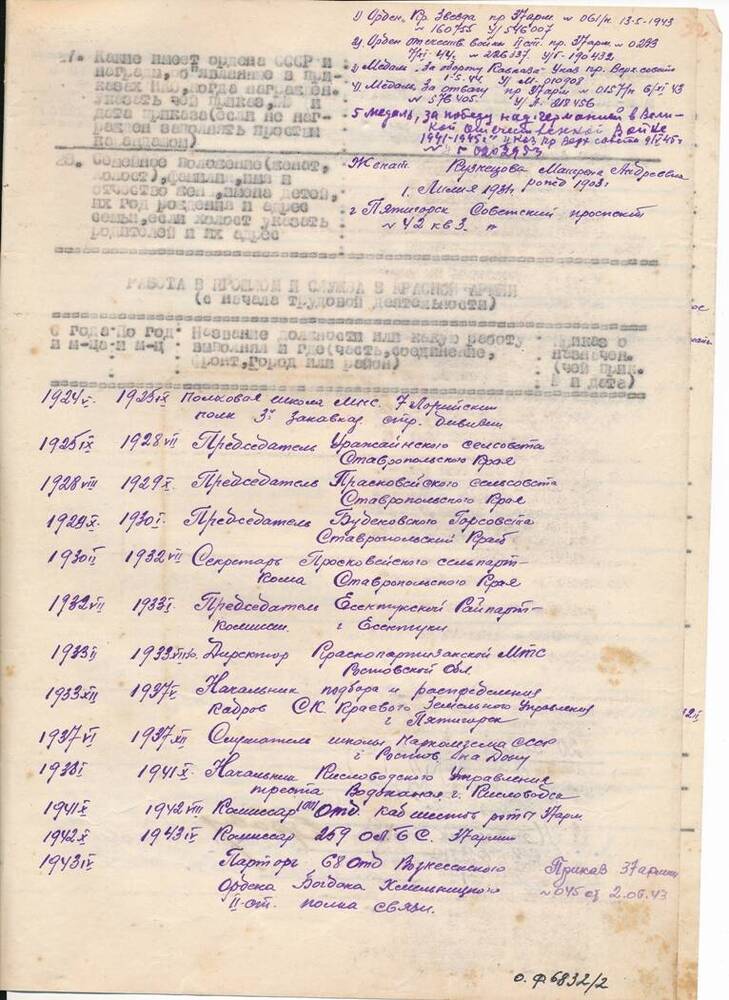 1) Орден „Кр. Звезда пр 37арм. № 061/н. 13-5-1943
№ 160755 У/ 546007
2) Орден отечеств войны IIст. пр. 37арм. № 0293
№ 226337. У/Г-190432.
3) Медаль „За оборону Кавказа" Указ пр. Верх.совета
1-5.44.
4) Медаль „За отвагу пр 37арм № 0157/н 6/XI 43
№ 576405. У/А. 218456
5 медаль, за победу над германией в Вели-
кой отечественной Войне
1941-1945г" Указ пр Верх совета 9/V 45г
27. Какие имеет ордена СССР и
награды, объявленные в при-
казах НКО, когда награжден.
Указать чей приказ, № и
дата приказа(если не наг-
ражден заполнять простым
командиром)
28. Семейное положение(женат,
холост), фамилия, имя и
отчество жены, имена детей,
их год рождения и адрес
семьи, если холост указать
родителей и их адрес
Женат Кузнецова Матрена Андреевна
1. Лилия 1931г. рожд 1903г
г Пятигорск Советский проспект
№ 42 кв 3.
РАБОТА В ПРОШЛОМ И СЛУЖБА В КРАСНОЙ АРМИИ
(с начала трудовой деятельности)
С года По год Название должности или какую работу Приказ о
и м-ца и м-ц выполнял и где(часть, соединение, назначен.
фронт, город или район) (чей прик.
№ и дата)
1924 V. 1925 IX Полковая школа мнс. 7 Лорийский
полк 3й Закавказ. стр. дивизии
1925 IX 1928 VII Председатель Уражайнского сельсовета
Ставропольского Края
1928 VIII 1929 X. Председатель Прасковейского сельсовета
Ставропольского Края
1929 X. 1930 I. Председатель Буденовского Горсовета
Ставропольский Край
1930 II 1932 VII Секретарь Просковейского сельпарт-
кома Ставропольского Края
1932 VII 1933 I. Председатель Есентукской Райпарт-
комиссии. г Есентуки
1933 II 1933 VII Директор Краснопартизанской МТС
Ростовской Обл.
1933 XII 1937 V Начальник подбора и распределения
кадров С К Краевого Земельного Управления
г Пятигорск
1937 VI 1937 XII Слушатель школы Наркомзема СССР
г Ростов на Дону
1938 I 1941 X. Начальник Кисловодского Управления
треста Водоканал г. Кисловодск
1941 X 1942 VIII Комиссар Отд. каб шестов роты 37арм.
1942 X 1943 IV Комиссар 269 ОЛБС. 37армии
1943 IV Парторг 68 Отд Вознесенского
Ордена Богдана Хмельницкого
II-ст. полка связи.
Приказ 37армии
№ 045 от 2.06.43
о.ф 6832/2